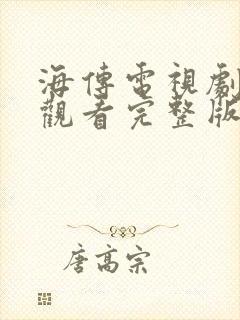 海傳電視劇
觀看完整版
唐高宗